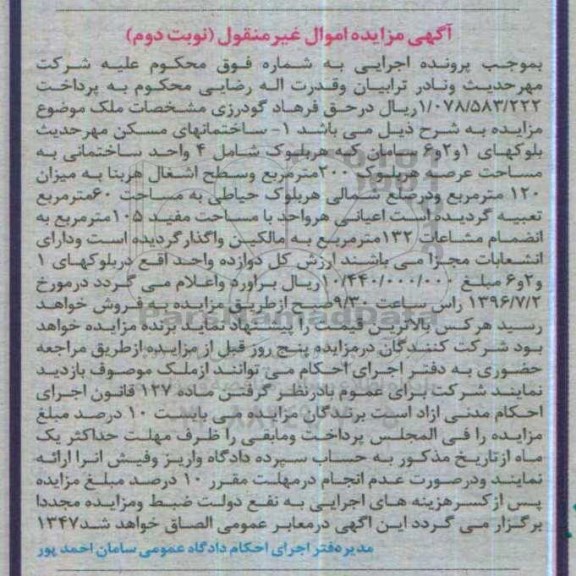 آگهی مزایده اموال غیر منقول (نوبت دوم)
بموجب پرونده اجرایی به شماره فوق محکوم علیه شرکت
مهرحدیث ونادر ترابیان وقدرت اله رضایی محکوم به پرداخت
۱/۰۷۸/۵۸۳/۲۲۲ریال درحق فرهاد گودرزی مشخصات ملک موضوع
مزایده به شرح ذیل می باشد ۱- ساختمانهای مسکن مهرحدیث
بلوکهای ۱و۲و۶ سامان که هربلوک شامل ۴ واحد ساختمانی به
مساحت عرصه هربلوک ۲۰۰مترمربع وسطح اشغال هربنا به میزان
۱۲۰ مترمربع ودرضلع شمالی هربلوک حیاطی به مساحت ۶۰مترمربع
تعبیه گردیده است اعیانی هرواحد با مساحت مفید ۱۰۵مترمربع به
انضمام مشاعات ۱۳۲مترمربع به مالکین واگذارگردیده است ودارای
انشعابات مجزا می باشند ارزش کل دوازده واحد اقع دربلوکهای ۱
و۲و۶ مبلغ ۱۰/۴۴۰/۰۰۰/۰۰۰ریال براورد واعلام می گردد درمورخ
۱۳۹۶/۷/۲ راس ساعت ۹/۳۰صبح ازطریق مزایده به فروش خواهد
رسید هرکس بالاترین قیمت را پیشنهاد نماید برنده مزایده خواهد
بود شرکت کنندگان درمزایده پنج روز قبل از مزایده ازطریق مراجعه
حضوری به دفتر اجرای احکام می توانند ازملک موصوف بازدید
نمایند شرکت برای عموم بادرنظر گرفتن ماده ۱۲۷ قانون اجرای
احکام مدنی ازاد است برندگان مزایده می بایست ۱۰ درصد مبلغ
مزایده را فی المجلس پرداخت ومابقی را ظرف مهلت حداکثر یک
ماه ازتاریخ مذکور به حساب سپرده دادگاه واریز وفیش انرا ارائه
نمایند ودرصورت عدم انجام درمهلت مقرر ۱۰ درصد مبلغ مزایده
پس ازکسرهزینه های اجرایی به نفع دولت ضبط ومزایده مجددا
برگزار می گردد این اگهی درمعابر عمومی الصاق خواهد شد۱۳۴۷
مدیردفتر اجرای احکام دادگاه عمومی سامان احمد پور